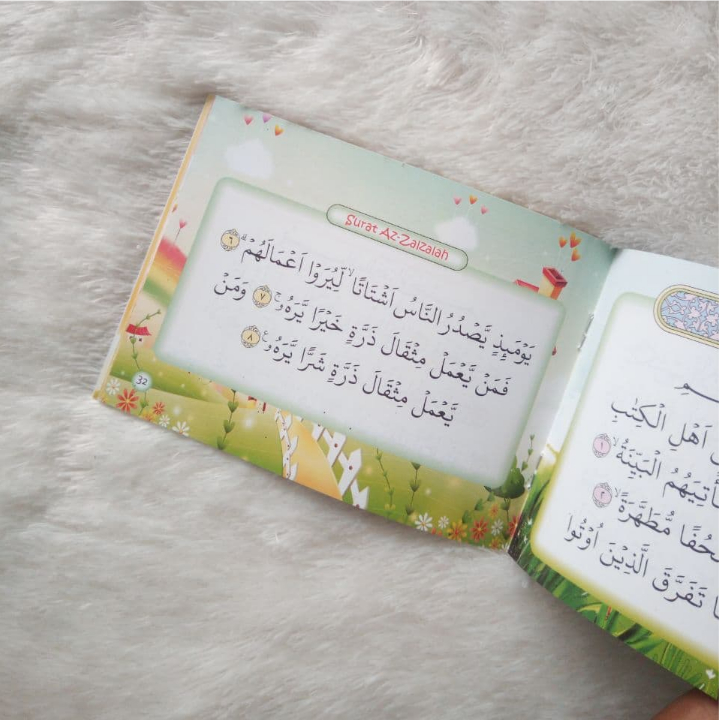 Surat Az-Zalzalah
يَوْمَىِٕذٍ يَّصْدُرُ النَّاسُ اَشْتَاتًا ۙ لِّيُرَوْا اَعْمَالَهُمْ ۗ ٦
فَمَنْ يَّعْمَلْ مِثْقَالَ ذَرَّةٍ خَيْرًا يَّرَهٗ ۚ ٧ وَمَنْ
يَّعْمَلْ مِثْقَالَ ذَرَّةٍ شَرًّا يَّرَهٗ ۚ ٨
32
اَهْلِ الْكِتٰبِ
الْبَيِّنَةُ ۙ ١
مُّطَهَّرَةً ۙ ٢
تَفَرَّقَ الَّذِيْنَ اُوْتُوا